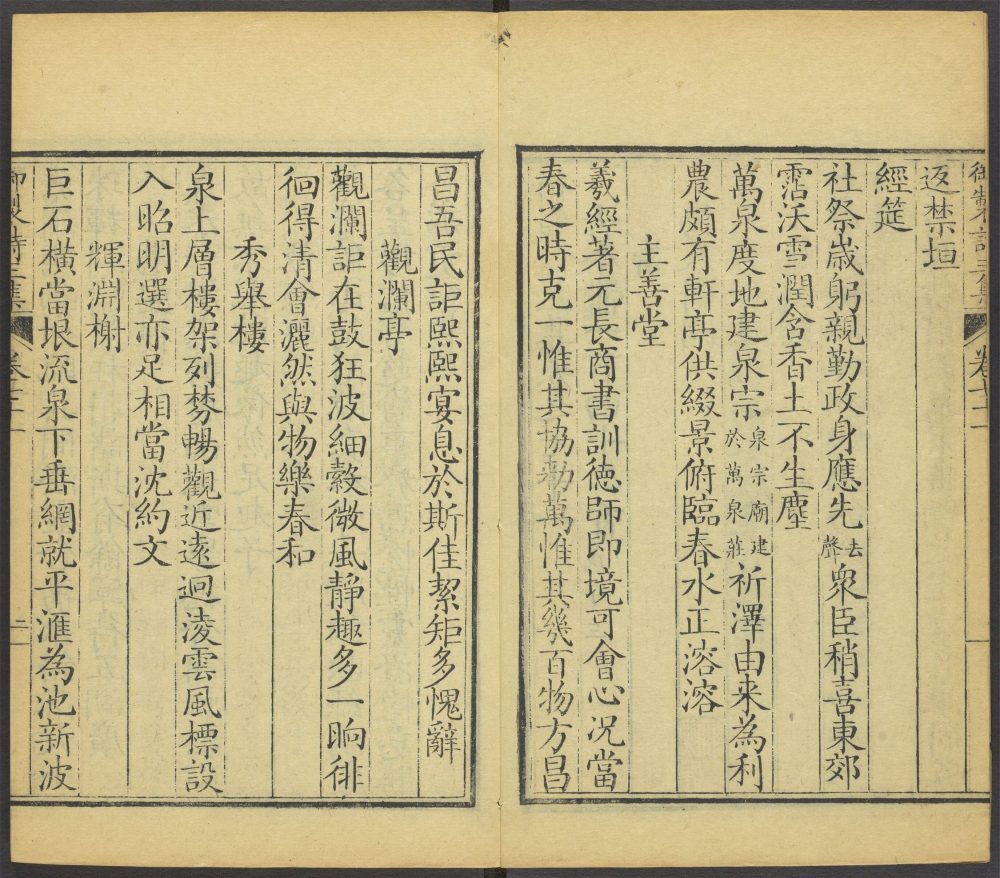 返禁垣
經筵
社祭嵗躬親勤政身應先去聲衆臣稍喜東郊
霑沃雪潤含香土不生塵
萬泉度地建泉宗泉宗廟建於萬泉莊祈澤由来為利
農頗有軒亭供綴景俯臨春水正溶溶
主善堂
羲經著元長商書訓德師即境可會心况當
春之時克一惟其協勑萬惟其幾百物方昌
昌吾民詎熙熙宴息於斯佳絜矩多愧辭
觀瀾亭
觀瀾詎在鼓狂波細縠微風静趣多一晌徘
徊得清會灑然與物樂春和
秀舉樓
泉上層樓架列棼暢觀近逺迥淩雲風標設
入昭明選亦足相當沈約文
輝淵榭
巨石横當垠流泉下垂網就平滙為池新波